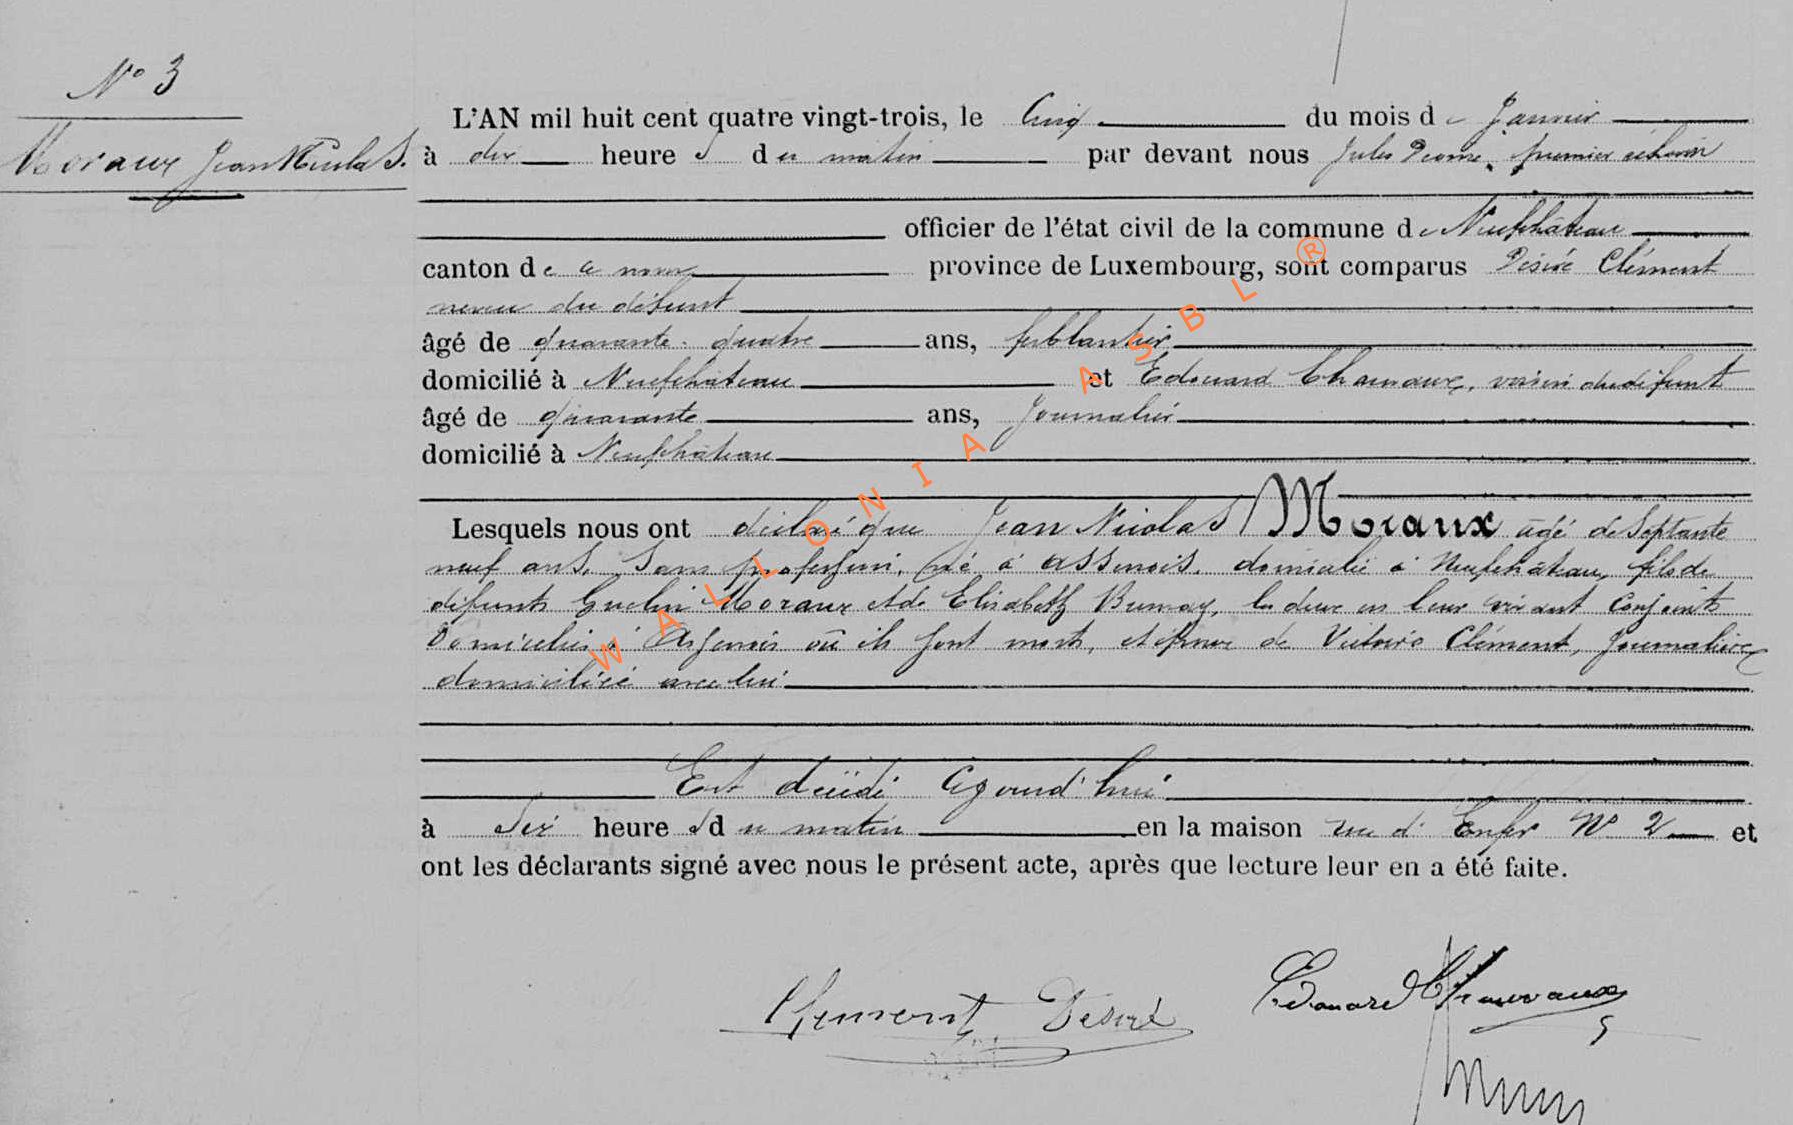 N° 3
Moraux Jean Nicolas.
L'AN mil huit cent quatre vingt-trois, le Cinq du mois de Janvier
à dix heures du matin par devant nous Jules premier échevin
officier de l'état civil de la commune de Neufchâteau
canton de ce nom province de Luxembourg, sont comparus Désiré Clément
neveu du défunt
âgé de quarante-quatre ans, ferblantier
domicilié à Neufchâteau et Edouard voisin du défunt
âgé de quarante ans, Journalier
domicilié à Neufchâteau
Lesquels nous ont déclaré que Jean Nicolas Moraux âgé de Septante
neuf ans, Sans profession, né à Assenois, domicilié à Neufchâteau, fils de
défunts Moraux et de Elisabeth les deux en leur vivant Conjoints
Domiciliés à Assenois où ils sont morts, et époux de Victoire Clément, Journalière
domiciliée avec lui
Est décédé aujourd'hui
à heures du matin en la maison rue d'Enfer N° 2 et
ont les déclarants signé avec nous le présent acte, après que lecture leur en a été faite.
Clement Désiré
Edouard
WALLONIA ASBL ®